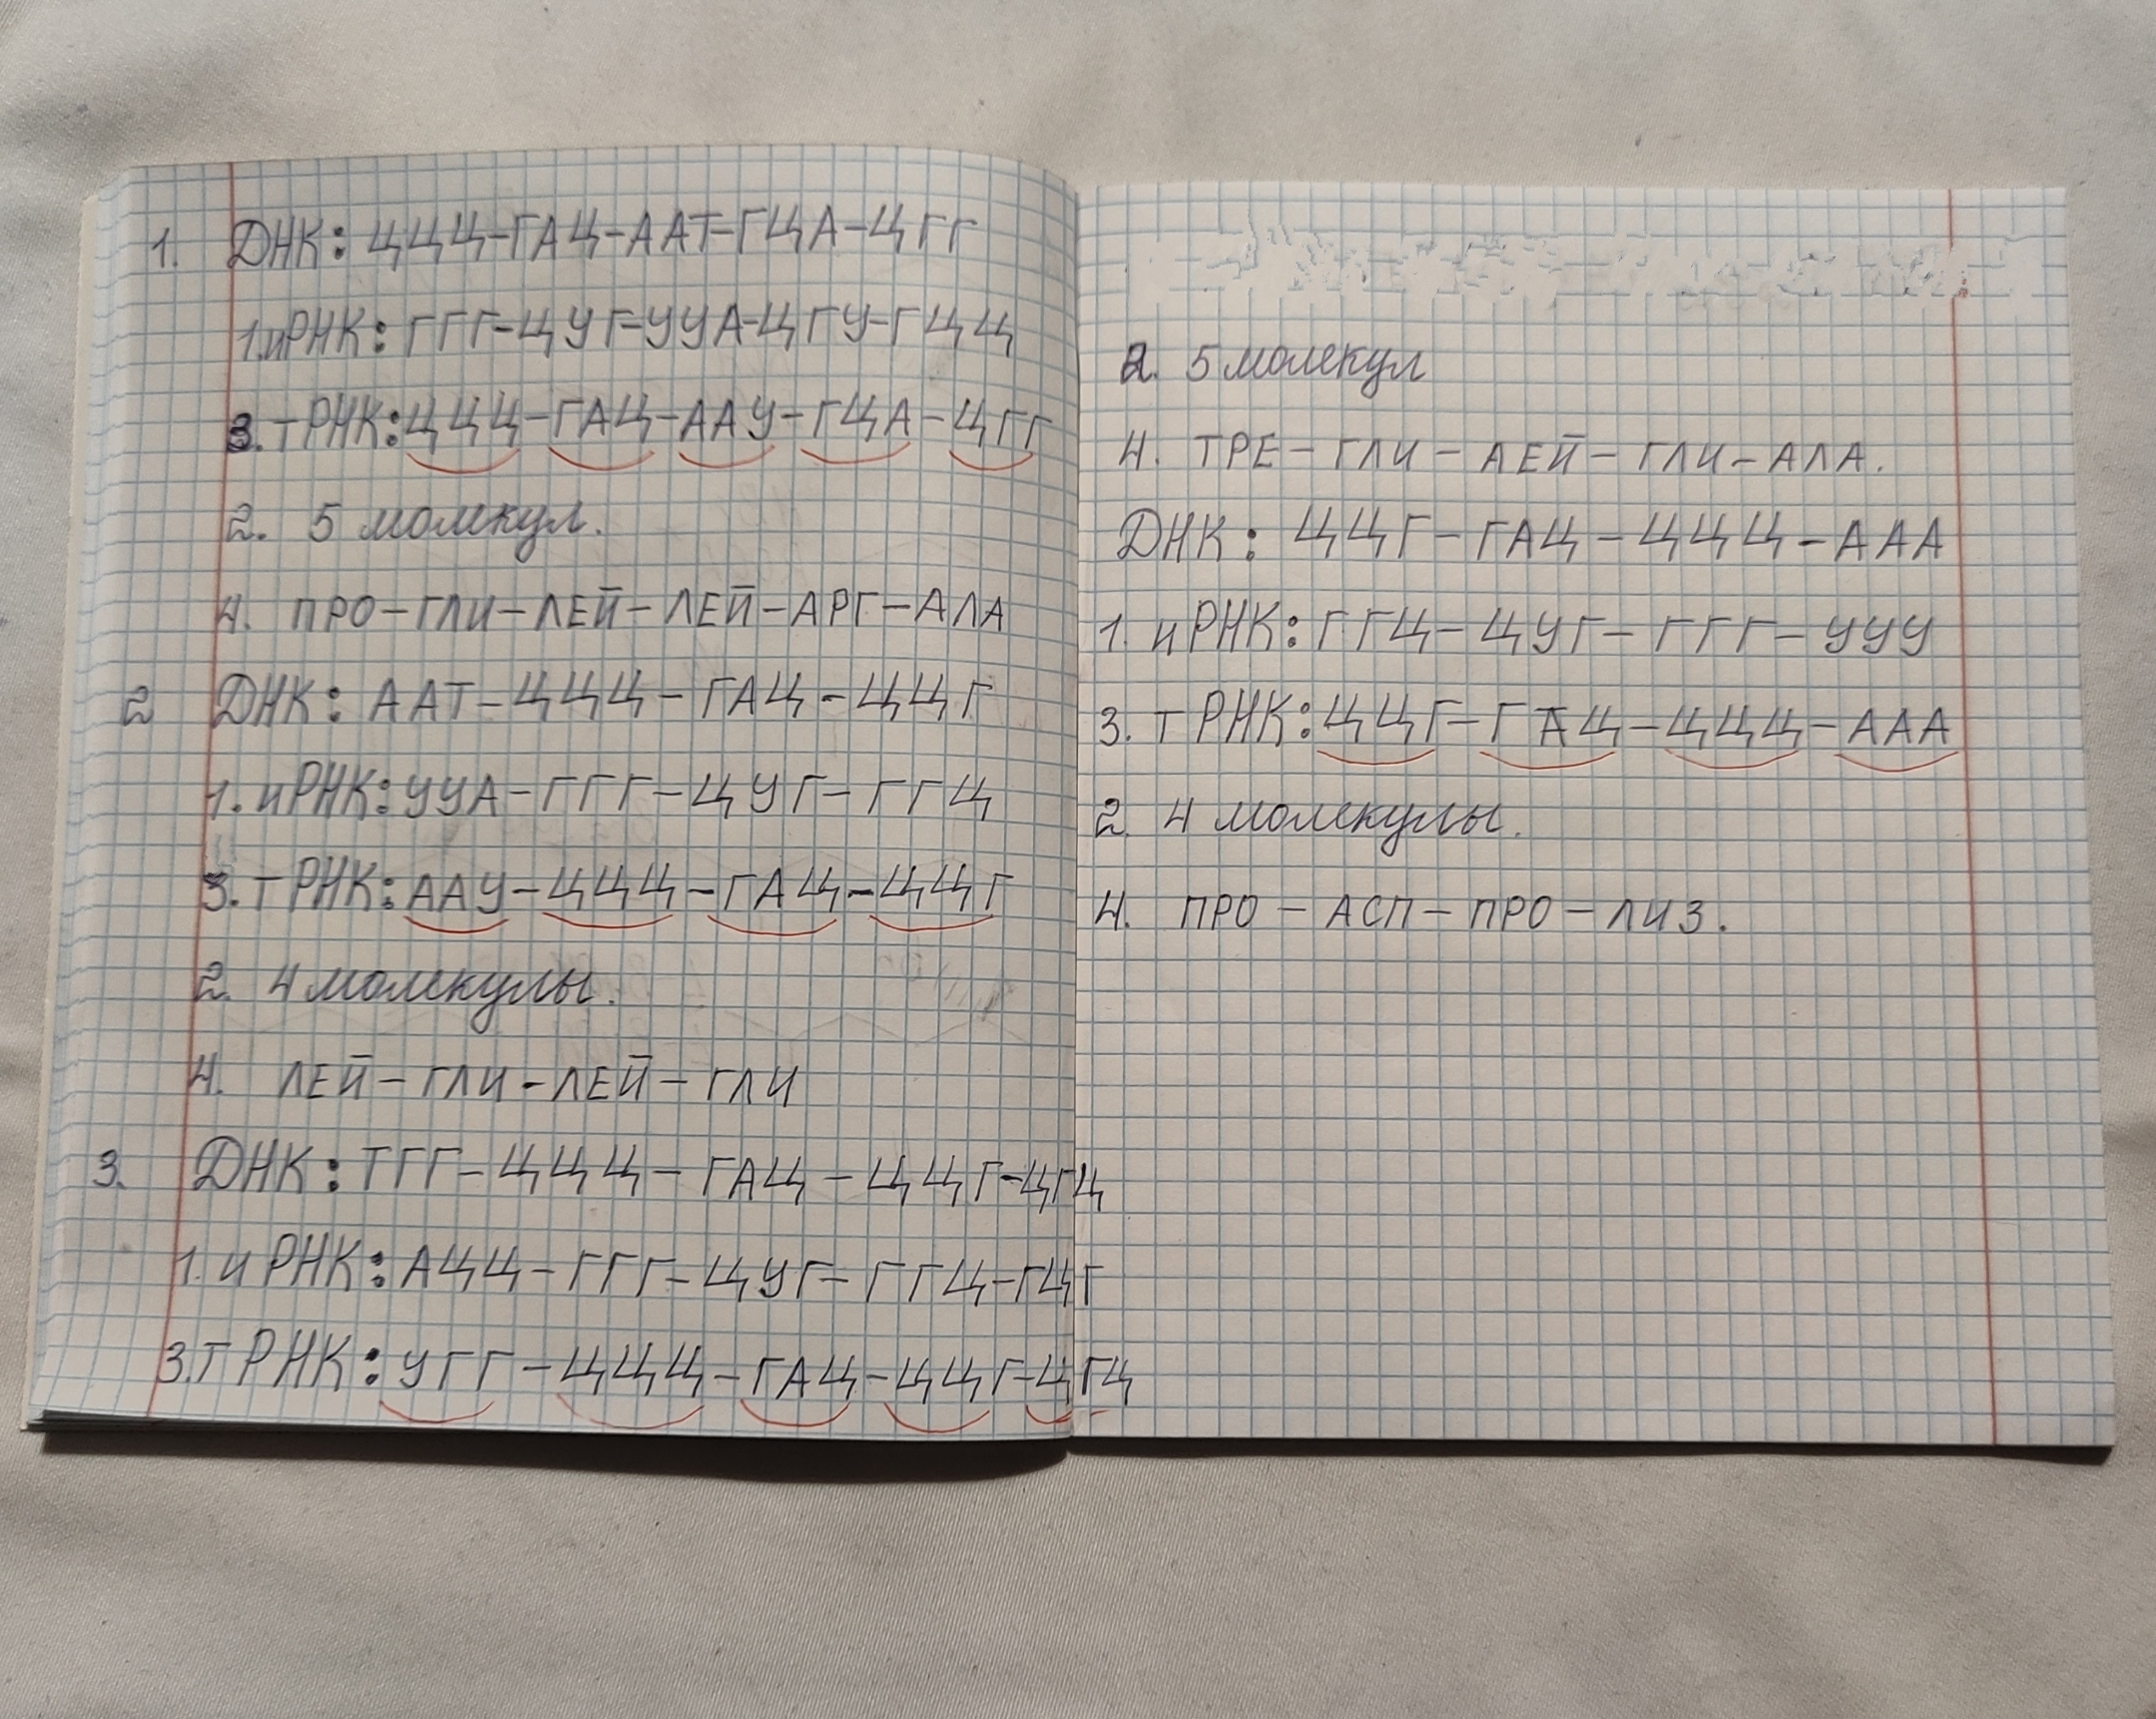 1. ДНК: ЦЦЦ-ГАЦ-ААТ-ГЦА-ЦГГ
1.иРНК: ГГГ-ЦУГ-УУА-ЦГУ-ГЦЦ
3.тРНК:ЦЦЦ-ГАЦ-ААУ-ГЦА-ЦГГ
2. 5 молекул.
4. ПРО-ГЛИ-ЛЕЙ-ЛЕЙ-АРГ-АЛА
2 ДНК: ААТ-ЦЦЦ-ГАЦ-ЦЦГ
1.иРНК:УУА-ГГГ-ЦУГ-ГГЦ
3.тРНК:ААУ-ЦЦЦ-ГАЦ-ЦЦГ
2. 4 молекулы.
4. ЛЕЙ-ГЛИ-ЛЕЙ-ГЛИ
3. ДНК: ТГГ-ЦЦЦ-ГАЦ-ЦЦГ-ЦГЦ
1. иРНК: АЦЦ-ГГГ-ЦУГ-ГГЦ-ГЦГ
3.тРНК: УГГ-ЦЦЦ-ГАЦ-ЦЦГ-ЦГЦ
2. 5 молекул
4. ТРЕ-ГЛИ-ЛЕЙ-ГЛИ-АЛА.
ДНК: ЦЦГ-ГАЦ-ЦЦЦ-ААА
1. иРНК: ГГЦ-ЦУГ-ГГГ-УУУ
3. тРНК:ЦЦГ-ГАЦ-ЦЦЦ-ААА
2. 4 молекулы.
4. ПРО-АСП-ПРО-ЛИЗ.